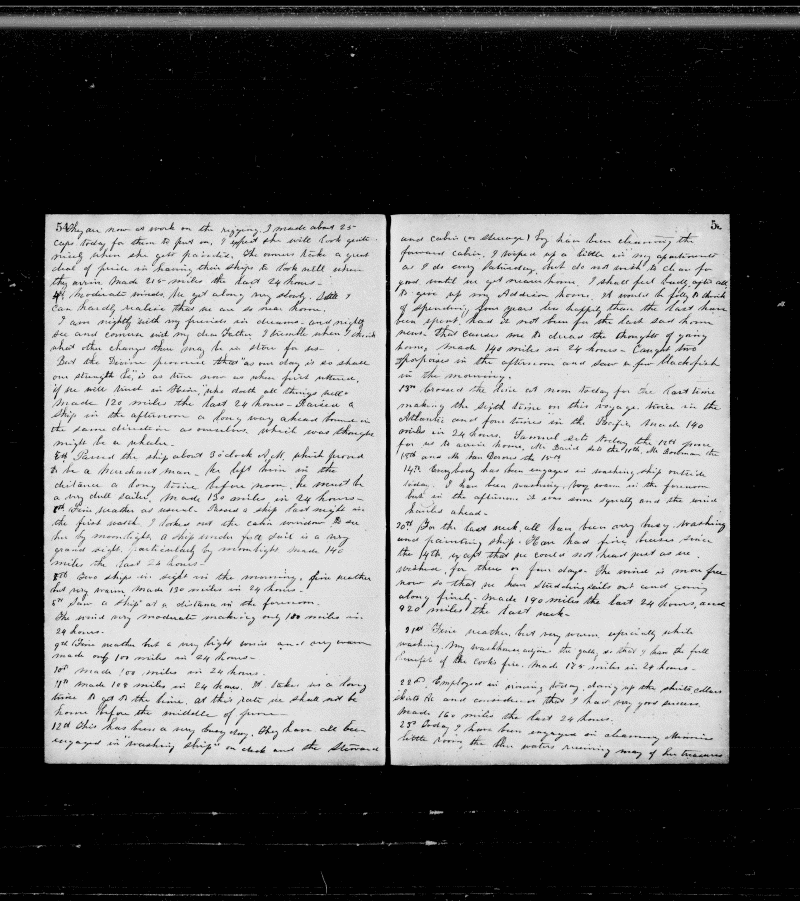 54 They are now at work on the rigging. I made about 25
caps today for them to put on. I expect she will look quite
nicely when she gets painted. The owners take a great
deal of pride in having their ships to look well when
they arrive. Made 215 miles the last 24 hours-
4th Moderate winds. We get along very slowly. I
can hardly realize that we are so near home.
I am nightly with my friends in dreams- and nightly
see and converse with my dear Father. I tremble when I think
what other changes there may be in store for us.
But the Divine promise that "as our day is so shall
our strength be," is as true now as when first uttered,
if we will trust in Him, "who doeth all things well"
Made 120 miles the last 24 hours- Raised a
ship in the afternoon a long way ahead bound in
the same direction as ourselves. which was thought
might be a whaler-
Passed the ship about 3 o'clock A.M. which proved
to be a merchant man. We left him in the
distance a long time before noon. He must be
a very dull sailer. Made 130 miles in 24 hours-
Fine weather as usual. Passed a ship last night in
the first watch. I looked out the cabin window to see
her by moonlight. A ship under full sail is a very
grand sight, particularly by moonlight. Made 140
miles the last 24 hours-
Two ships in sight in the morning. fine weather
but very warm. Made 130 miles in 24 hours-
Saw a ship at a distance in the forenoon.
The wind very moderate making only 100 miles in
24 hours.
9th Fine weather but a very light wind and very warm
made only 100 miles in 24 hours-
10th Made 100 miles in 24 hours.
11th Made 108 miles in 24 hours. It takes us a long
time to get to the line. At this rate we shall not be
home before the middle of June-
12th This has been a very busy day. They have all been
engaged in "washing ship" on deck and the Steward
and cabin (or steerage) boy have been cleaning the
forward cabin. I wiped up a little in my apartments
as I do every Saturday, but do not wish to clean for
good until we get nearer home. I shall feel badly, after all
to give up my Addison home. It would be folly to think
of spending four years less happily than the last have
been spent, had it not been for the last sad home
news- that causes me to dread the thought of going
home. Made 140 miles in 24 hours- Caught two
porpoises in the afternoon and saw a few blackfish
in the morning.
13th Crossed the line at noon today for the last time
making the sixth time on this voyage. twice in the
Atlantic and four times in the Pacific. Made 140
miles in 24 hours. Samuel sets today the 12th June
for us to arrive home, Mr David sets the 10th, Mr Bowman the
15th and Mr Van Dorens the 18th
14th Everybody has been engaged in washing ship outside
today. I have been washing. Very warm in the forenoon
but in the afternoon it was some squally and the wind
hauled ahead-
20th For the last week, all have been very busy washing
and painting ship. Have had fine breezes since
the 14th. except that we could not head just as we
wished, for three or four days. The wind is more free
now so that we have studding sails out and going
along finely. Made 190 miles the last 24 hours, and
920 miles the last week-
21st Fine weather, but very warm especially while
washing. My washhouse adjoins the galley, so that I have the full
benefit of the cook's fire. Made 175 miles in 24 hours-
22nd. Employed in ironing today, doing up the shirts collars
and consider that I had very good success.
Made 160 miles the last 24 hours.
23rd Today I have been engaged in cleaning Minnies
little room the blue waters receiving many of her treasures